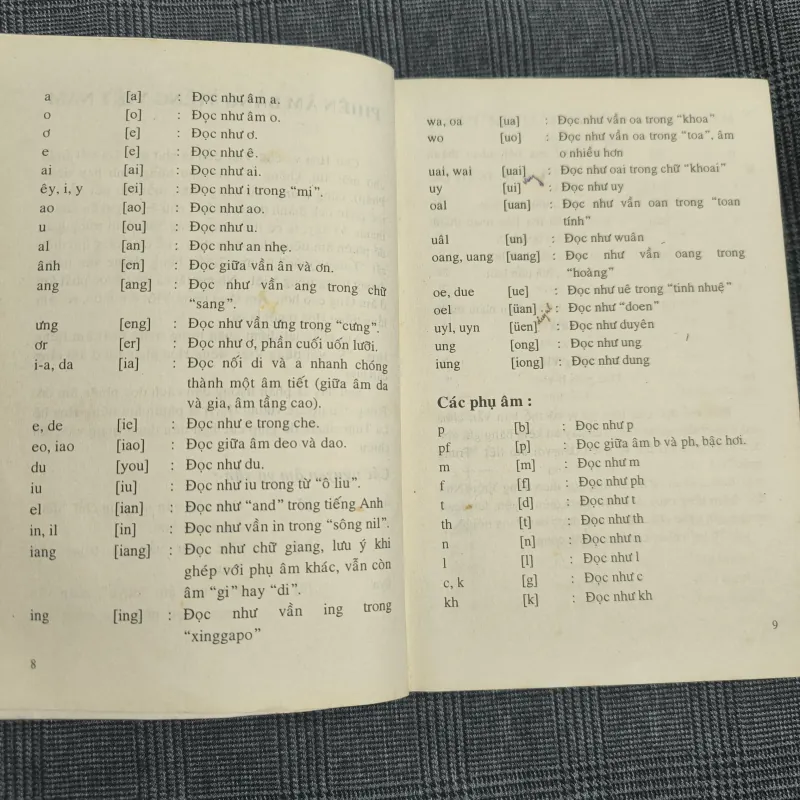 a [a] : Đọc như âm a.
o [o] : Đọc như âm o.
ơ [e] : Đọc như ơ.
e [e] : Đọc như ê.
ai [ai] : Đọc như ai.
êy, i, y [ei] : Đọc như i trong “mi”.
ao [ao] : Đọc như ao.
u [ou] : Đọc như u.
al [an] : Đọc như an nhẹ.
ânh [en] : Đọc giữa vần ân và ơn.
ang [ang] : Đọc như vần ang trong chữ
“sang”.
ưng [eng] : Đọc như vần ưng trong “cưng”.
ơr [er] : Đọc như ơ, phần cuối uốn lưỡi.
i-a, da [ia] : Đọc nối di và a nhanh chóng
thành một âm tiết (giữa âm da
và gia, âm tầng cao).
e, de [ie] : Đọc như e trong che.
eo, iao [iao] : Đọc giữa âm deo và dao.
du [you] : Đọc như du.
iu [iu] : Đọc như iu trong từ “ô liu”.
el [ian] : Đọc như “and” trong tiếng Anh
in, il [in] : Đọc như vần in trong “sông nil”.
iang [iang] : Đọc như chữ giang, lưu ý khi
ghép với phụ âm khác, vẫn còn
âm “gi” hay “di”.
ing [ing] : Đọc như vần ing trong
“xinggapo”
8
wa, oa [ua] : Đọc như vần oa trong “khoa”
wo [uo] : Đọc như vần oa trong “toa”, âm
o nhiều hơn
uai, wai [uai] : Đọc như oai trong chữ “khoai”
uy [ui] : Đọc như uy
oal [uan] : Đọc như vần oan trong “toan
tính”
uâl [un] : Đọc như wuân
oang, uang [uang] : Đọc như vần oang trong
“hoàng”
oe, due [ue] : Đọc như uê trong “tinh nhuệ”
oel [üan] : Đọc như “doen”
uyl, uyn [üen] : Đọc như duyên
ung [ong] : Đọc như ung
iung [iong] : Đọc như dung
Các phụ âm :
p [b] : Đọc như p
pf [p] : Đọc giữa âm b và ph, bậc hơi.
m [m] : Đọc như m
f [f] : Đọc như ph
t [d] : Đọc như t
th [t] : Đọc như th
n [n] : Đọc như n
l [l] : Đọc như l
c, k [g] : Đọc như c
kh [k] : Đọc như kh
9